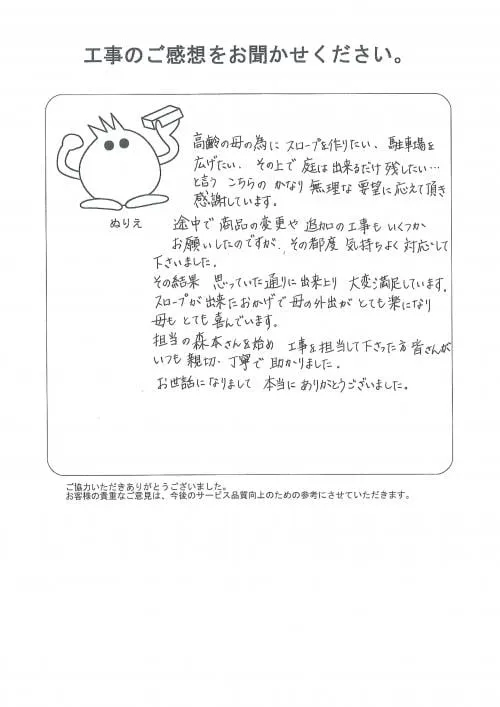 工事のご感想をお聞かせください。
高齢の母の為に スロープを作りたい、駐車場を
広げたい、その上で 庭は 出来るだけ 残したい…
と言う こちらの かなり 無理な 要望に 応えて頂き
感謝しています。
ぬりえ
途中で 商品の変更や 追加の工事も いくつか
お願いしたのですが、その都度 気持ちよく 対応して
下さいました。
その結果 思っていた通りに出来上り 大変満足しています。
スロープが 出来たおかげで 母の外出が とても楽になり
母も とても 喜んでいます。
担当の 森本さんを始め 工事を担当して下さった方 皆さんが
いつも 親切・丁寧で 助かりました。
お世話になりまして 本当に ありがとうございました。
ご協力いただきありがとうございました。
お客様の貴重なご意見は、今後のサービス品質向上のための参考にさせていただきます。